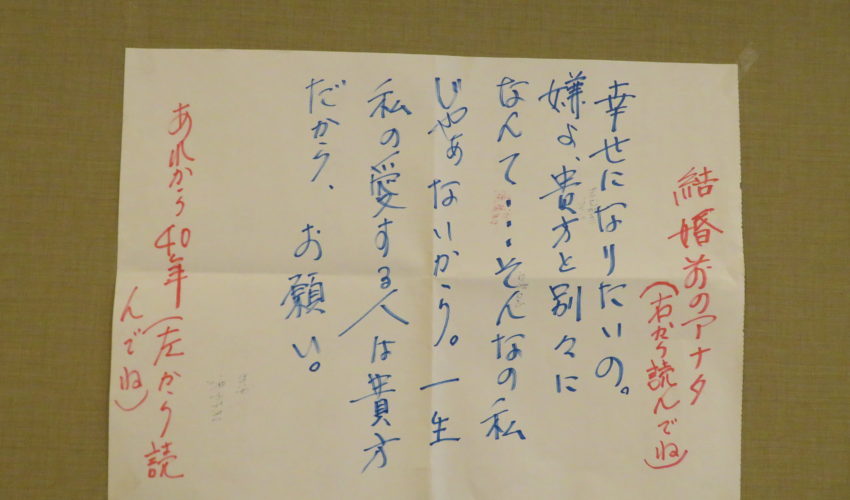 結婚前のアナタ
(右から読んでね)
幸せになりたいの。
嫌よ、貴方と別々に
なんて・・・そんなの私
じゃあないから。一生
私の愛する人は貴方
だから、お願い。
あれから40年(左から読
んでね)